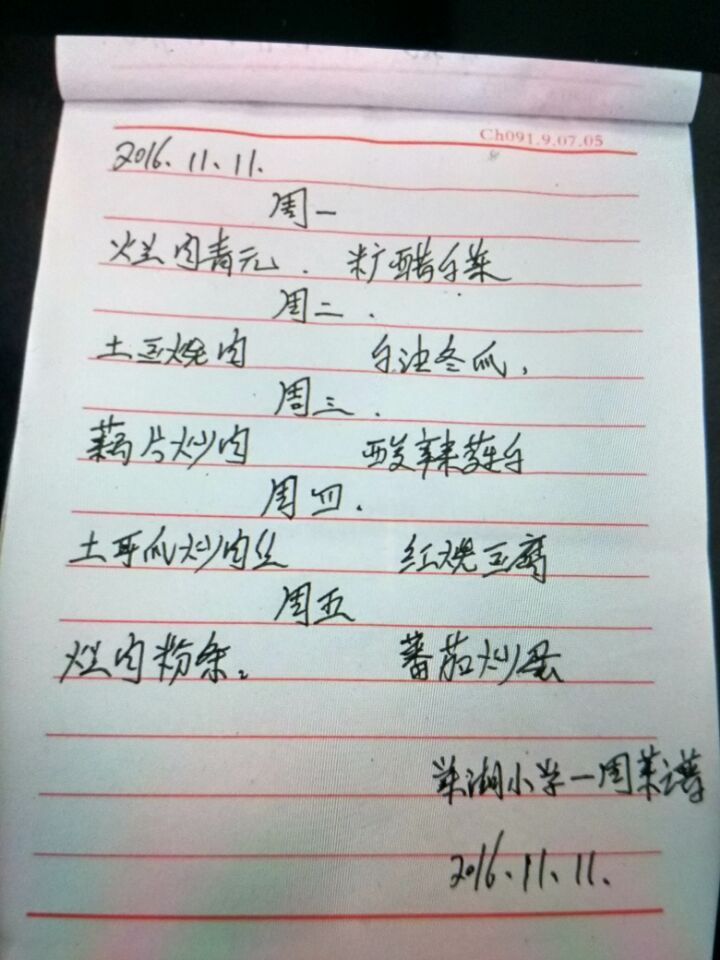 Ch091.9.07.05
2016.11.11.
周一
烂肉青元. 糖醋白菜
周二.
土豆烧肉 白油冬瓜.
周三.
藕片炒肉 酸辣莲白
周四.
土耳瓜炒肉丝 红烧豆腐
周五
烂肉粉条。 蕃茄炒蛋
湖小学一周菜谱
2016.11.11.